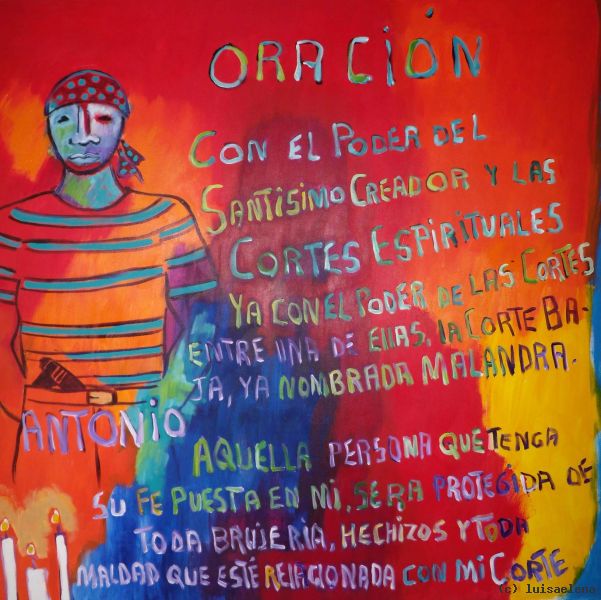 ORACIÓN
CON EL PODER DEL
SANTISIMO CREADOR Y LAS
CORTES ESPIRITUALES
YA CON EL PODER DE LAS CORTES
ENTRE UNA DE ELLAS, LA CORTE BA-
JA, YA NOMBRADA MALANDRA.
ANTONIO
AQUELLA PERSONA QUE TENGA
SU FE PUESTA EN MI, SERA PROTEGIDA DE
TODA BRUJERIA, HECHIZOS Y TODA
MALDAD QUE ESTÉ RELACIONADA CON MI CORTE
(c) luisaelena